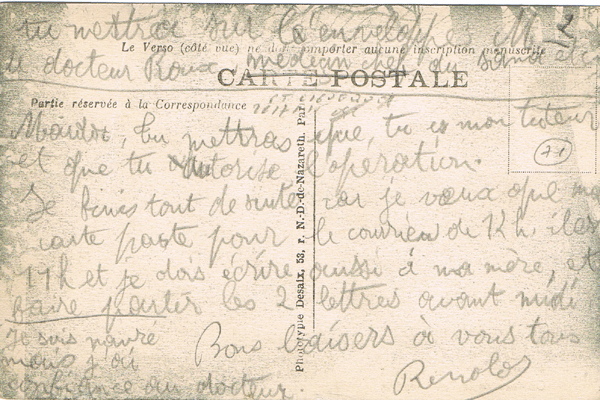 tu mettras sur les enveloppes M
Le Verso (côté vue) ne doit comporter aucune inscription manuscrite
le docteur Roux, médecin chef du
CARTE POSTALE
Partie réservée à la Correspondance
tu mettras que, tu es mon tuteur
et que tu autorise l'opération.
Je finis tout de suite car je veux que ma
carte parte pour le courrier de 12h, il es
11h et je dois écrire aussi à ma mère, et
faire partir les 2 lettres avant midi
Je suis navré
mais j'ai
confiance au docteur.
Bons baisers à vous tous
Phototypie Desaix, 53, r. N.-D.-de-Nazareth, Par
71